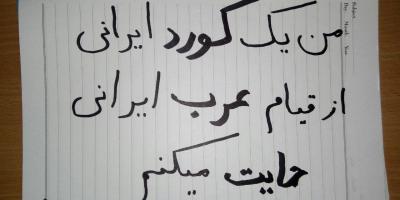 من یک کورد ایرانی
از قیام عرب ایرانی
حمایت میکنم